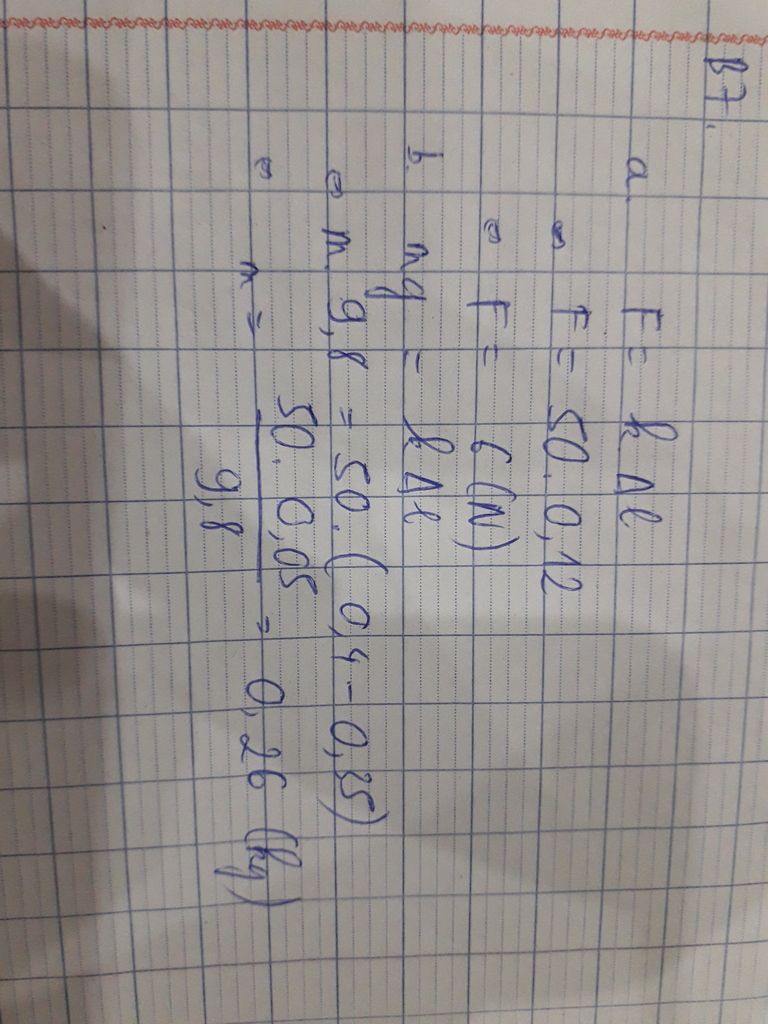 B7.
a. F = k Δl
⇔ F = 50 . 0,12
⇔ F = 6 (N)
b. mg = k Δl
⇔ m. 9,8 = 50. (0,4 - 0,35)
⇔ m = 50. 0,05 / 9,8 = 0,26 (kg)